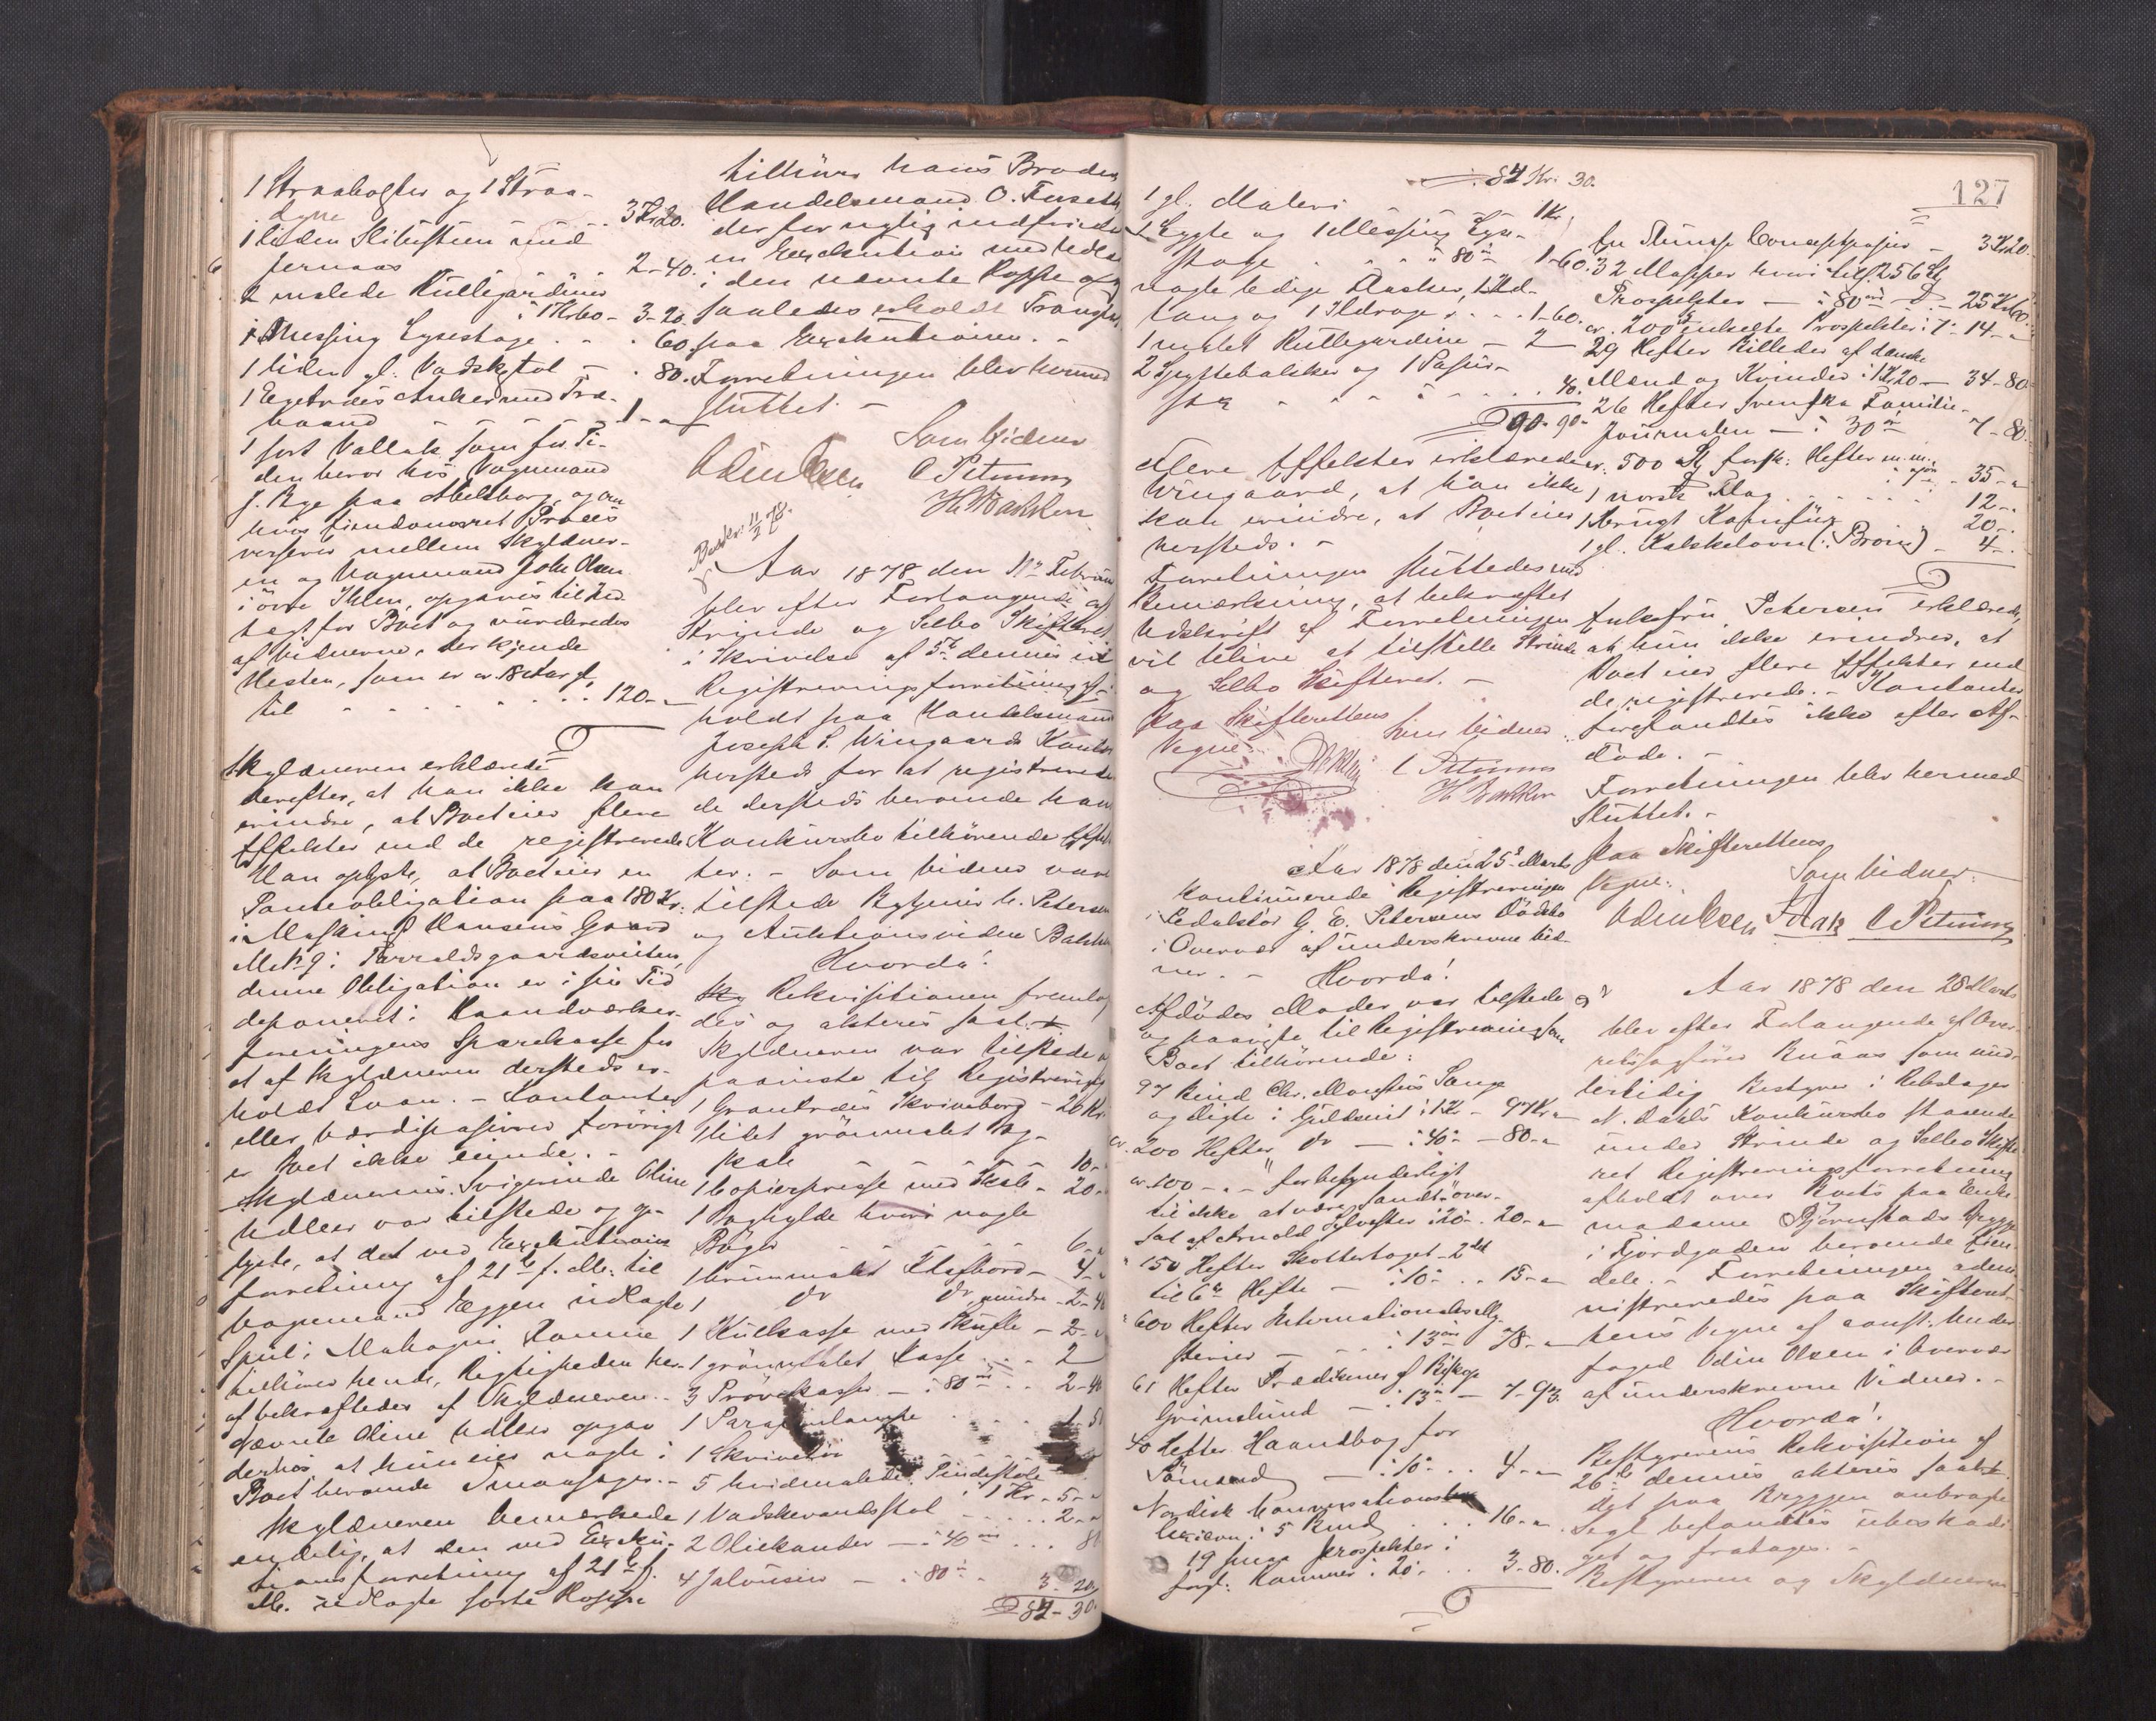 1 Straabolster og 1 Straa-
dyne . . . 3 Kr 20.
1 liden Slibesteen med
Jernaas . . 2-40.
2 malede Rullegardiner
à 1 Kr 60 - 3-20.
1 Messing Lysestage . . . 60
1 liden gl. Vadskestol - . 80.
1 Egetræes Anker med Træ-
baand 1 - "
1 sort Vallak som for Ti-
den beror hos Vognmand
J. Bye paa Abelsborg, og om
hvis Eiendomsret Proces
verserer mellem Skyldner-
en og Vognmand John Olsen
i øvre Ihlen, opgaves tilhø
af Vidnerne, der kjende
Hesten, som er cr. 18 Aar gl.
til . . . 120 - "
Skyldneren erklærede
derefter, at han ikke kan
erindre, at Boet eier flere
Effekter end de registrerede
Han oplyste, at Boet eier en
Panteobligation paa 180 Kr.
i Hansens Gaard
denne Obligation er i sin Tid
deponeret i Haandværker-
foreningens Sparekasse for
et af Skyldneren dersteds er-
holdt Laan. - Kontanter
eller Værdipapirer forøvrigt
er Boet ikke eiende. -
Skyldnerens Svigerinde Oline
var tilstede og op-
lyste, at det ved Exekutions
forretning af 21de f. M. til
Vognmand Eggen udlagte
Speil i Mahogni Ramme
tilhører hende, Rigtigheden her-
af bekræftedes af Skyldneren. -
Nævnte Oline opgav
derhos at hun eier nogle i
Boet beroende Smaasager. -
Skyldneren bemærkede
endelig, at den ved Exeku-
tionsforretning af 21de f.
M. udlagte sorte Hoppe
tilhører hans Broder
Handelsmand O. Fuseth
der for nylig indfriede
en Exekution med Udlæ
i den nævnte Hoppe og
saaledes erholdt Transport
paa Exekutionen. -
Forretningen blev hermed
sluttet. -
Som Vidner
Odin Olsen C Petersen
H. Bakken
Beskr. 11/2 78.
Aar 1878 den 11te Februar
blev efter Forlangende af
Strinde og Selbo Skifteret
i Skrivelse af 5te dennes en
Registreringsforretning af-
holdt paa Handelsmand
Joseph S. Wingaards Kontor
hersteds for at registrere
de dersteds beroende hans
Konkursbo tilhørende Effek
ter. - Som Vidner vare
tilstede C. Petersen
og Auktionsvidne Bakken
Hvorda!
Rekvisitionen fremlag
des og akteres saal.
Skyldneren var tilstede og
paaviste til Registrering
1 Grantræes Skrivebord - 20 Kr.
1 lidet grönmalet
skab 10 -
1 Copierpresse med Skab - 20 -
1 Boghylde hvori nogle
Bøger 6 -
1 brunmalet Klafbord - 4 -
1 do do mindre - 2-40
1 Kulkasse med Skuffe - 2 -
1 grönmalet Kasse . . . 2
3 Prøvekasser - à 80 ør . . 2-40
1 Parafinlampe . . . 1-50
1 Skrivetøi
5 hvidmalede Pindestole
à 1 Kr - 5 - "
1 Vadskevandsstol . . . 2 - "
2 Oliekander - à 40 ør . . . 80
4 Jalousier - à 80 ør . 3-20
84-30.
127
84 Kr. 30.
1 gl. Maleri 1 Kr.
2 Lygte og 1 Messing Lyse-
stage . . . à 80 ør 1-60.
nogle ledige Flasker, 1 Ild-
tang og 1 Ildrager . . . 1-60.
1 malet Rullegardine - 2
2 Spyttebakker og 1 Papir-
40.
90-90
Flere Effekter erklærede
Wingaard, at han ikke
kan erindre, at Boet eier
hersteds. -
Forretningen sluttedes med
Bemærkning, at bekræftet
Udskrift af Forretningen
vil blive at tilstille Strinde
og Selbo Skifteret. -
Paa Skifterettens
Vegne: Som Vidner:
C Petersen
H. Bakken
Aar 1878 den 25de Marts
kontinuerede Registreringen
i Redaktør G. E. Petersens Dødsbo
i Overvær af underskrevne Vid-
ner. - Hvorda!
Afdødes Moder var tilstede
og paaviste til Registrering som
Boet tilhørende:
97 Bind Chr. Monsens Sange
og Digte i Guldsnit à 1 Kr - 97 Kr "
cr. 200 Hefter do - à 40 - 80 - "
cr. 100 - " - "for besynderligt
til ikke at være sandt" over-
sat af Arnold Sylvester à 20 . 20 - "
" 150 Hefter Skottetoget - 2det
til 6te Hefte - à 10 . . 15 - "
" 600 Hefter Internationales My-
sterier - à 13 ør 78 - "
61 Hefter Prædikener af Biskop
Grimelund - à 13 - 7-93.
40 Hefter Haandbog for
Sømænd - à 10 . . 4 - "
Nordisk Konversations
lexicon i 5 Bind . . . 16 - "
19 smaa Prospekter i
forgl. Rammer à 20 . . 3-80.
En Stump Conceptpapir - 3 Kr 20.
32 Mapper hvori tils. 256 St
Prospekter - à 80 ør - 25 Kr 60.
cr. 200 St enkelte Prospekter à 7 - 14 - "
29 Hefter Billeder af danske
Mænd og Kvinder à 1 Kr 20 - 34-80
26 Hefter Svenska Familie-
Journalen - à 30 ør 7-80.
cr. 500 St forsk: Hefter m.m.
à 7 ør - 35 - "
1 norsk Flag . . . 12 - "
1 brugt 20 - .
1 gl. Kakkelovn (: Broin) - 4 - .
Enkefru Petersen erklærede,
at hun ikke erindrer, at
Boet eier flere Effekter end
de registrerede. - Kontanter
forefandtes ikke efter Af-
døde. -
Forretningen blev hermed
sluttet. -
Paa Skifterettens
Vegne: Som Vidner:
Odin Olsen C Petersen
Aar 1878 den 28 Marts
blev efter Forlangende af Over-
retssagfører Knaas som mid-
lertidig Bestyrer i Rebslager
N. Dahls Konkursbo staaende
under Strinde og Selbo Skifte
ret Registreringsforretning
afholdt over Boets paa Enke-
madame Bjørnstads Brygge
i Fjordgaden beroende Eien-
dele. - Forretningen admi
nistreredes paa Skifteret-
tens Vegne af const. Under
foged Odin Olsen i Overvær
af underskrevne Vidner. -
Hvorda!
Bestyrerens Rekvisition af
26de dennes akteres saal.
Det paa Bryggen anbragte
Segl befandtes ubeskadi-
get og fratoges. -
Bestyreren og Skyldneren